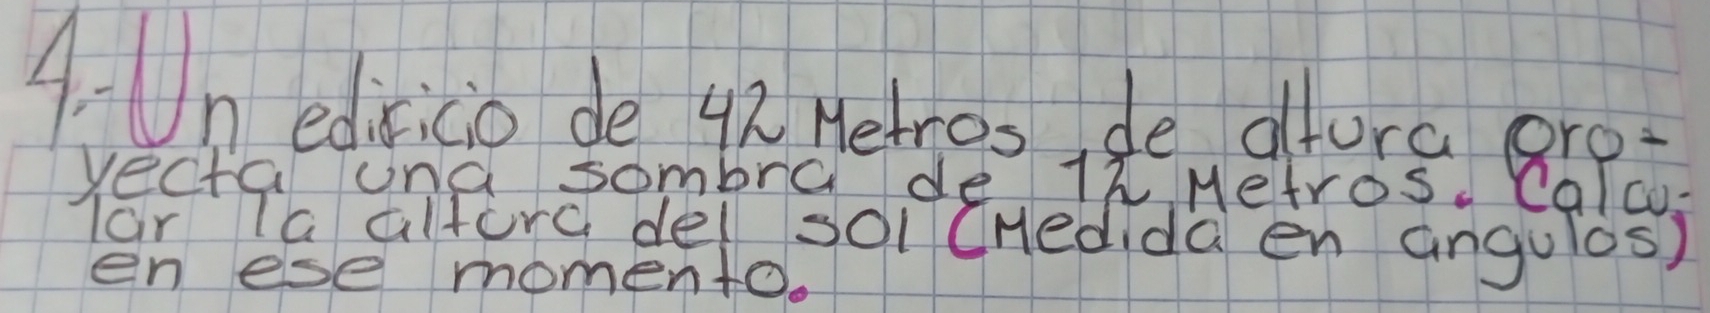 4.- Un edificio de 42 Metros de altura pro-
yecta una sombra de 12 Metros. Calcu-
lar la altura del sol (Medida en angulos)
en ese momento.